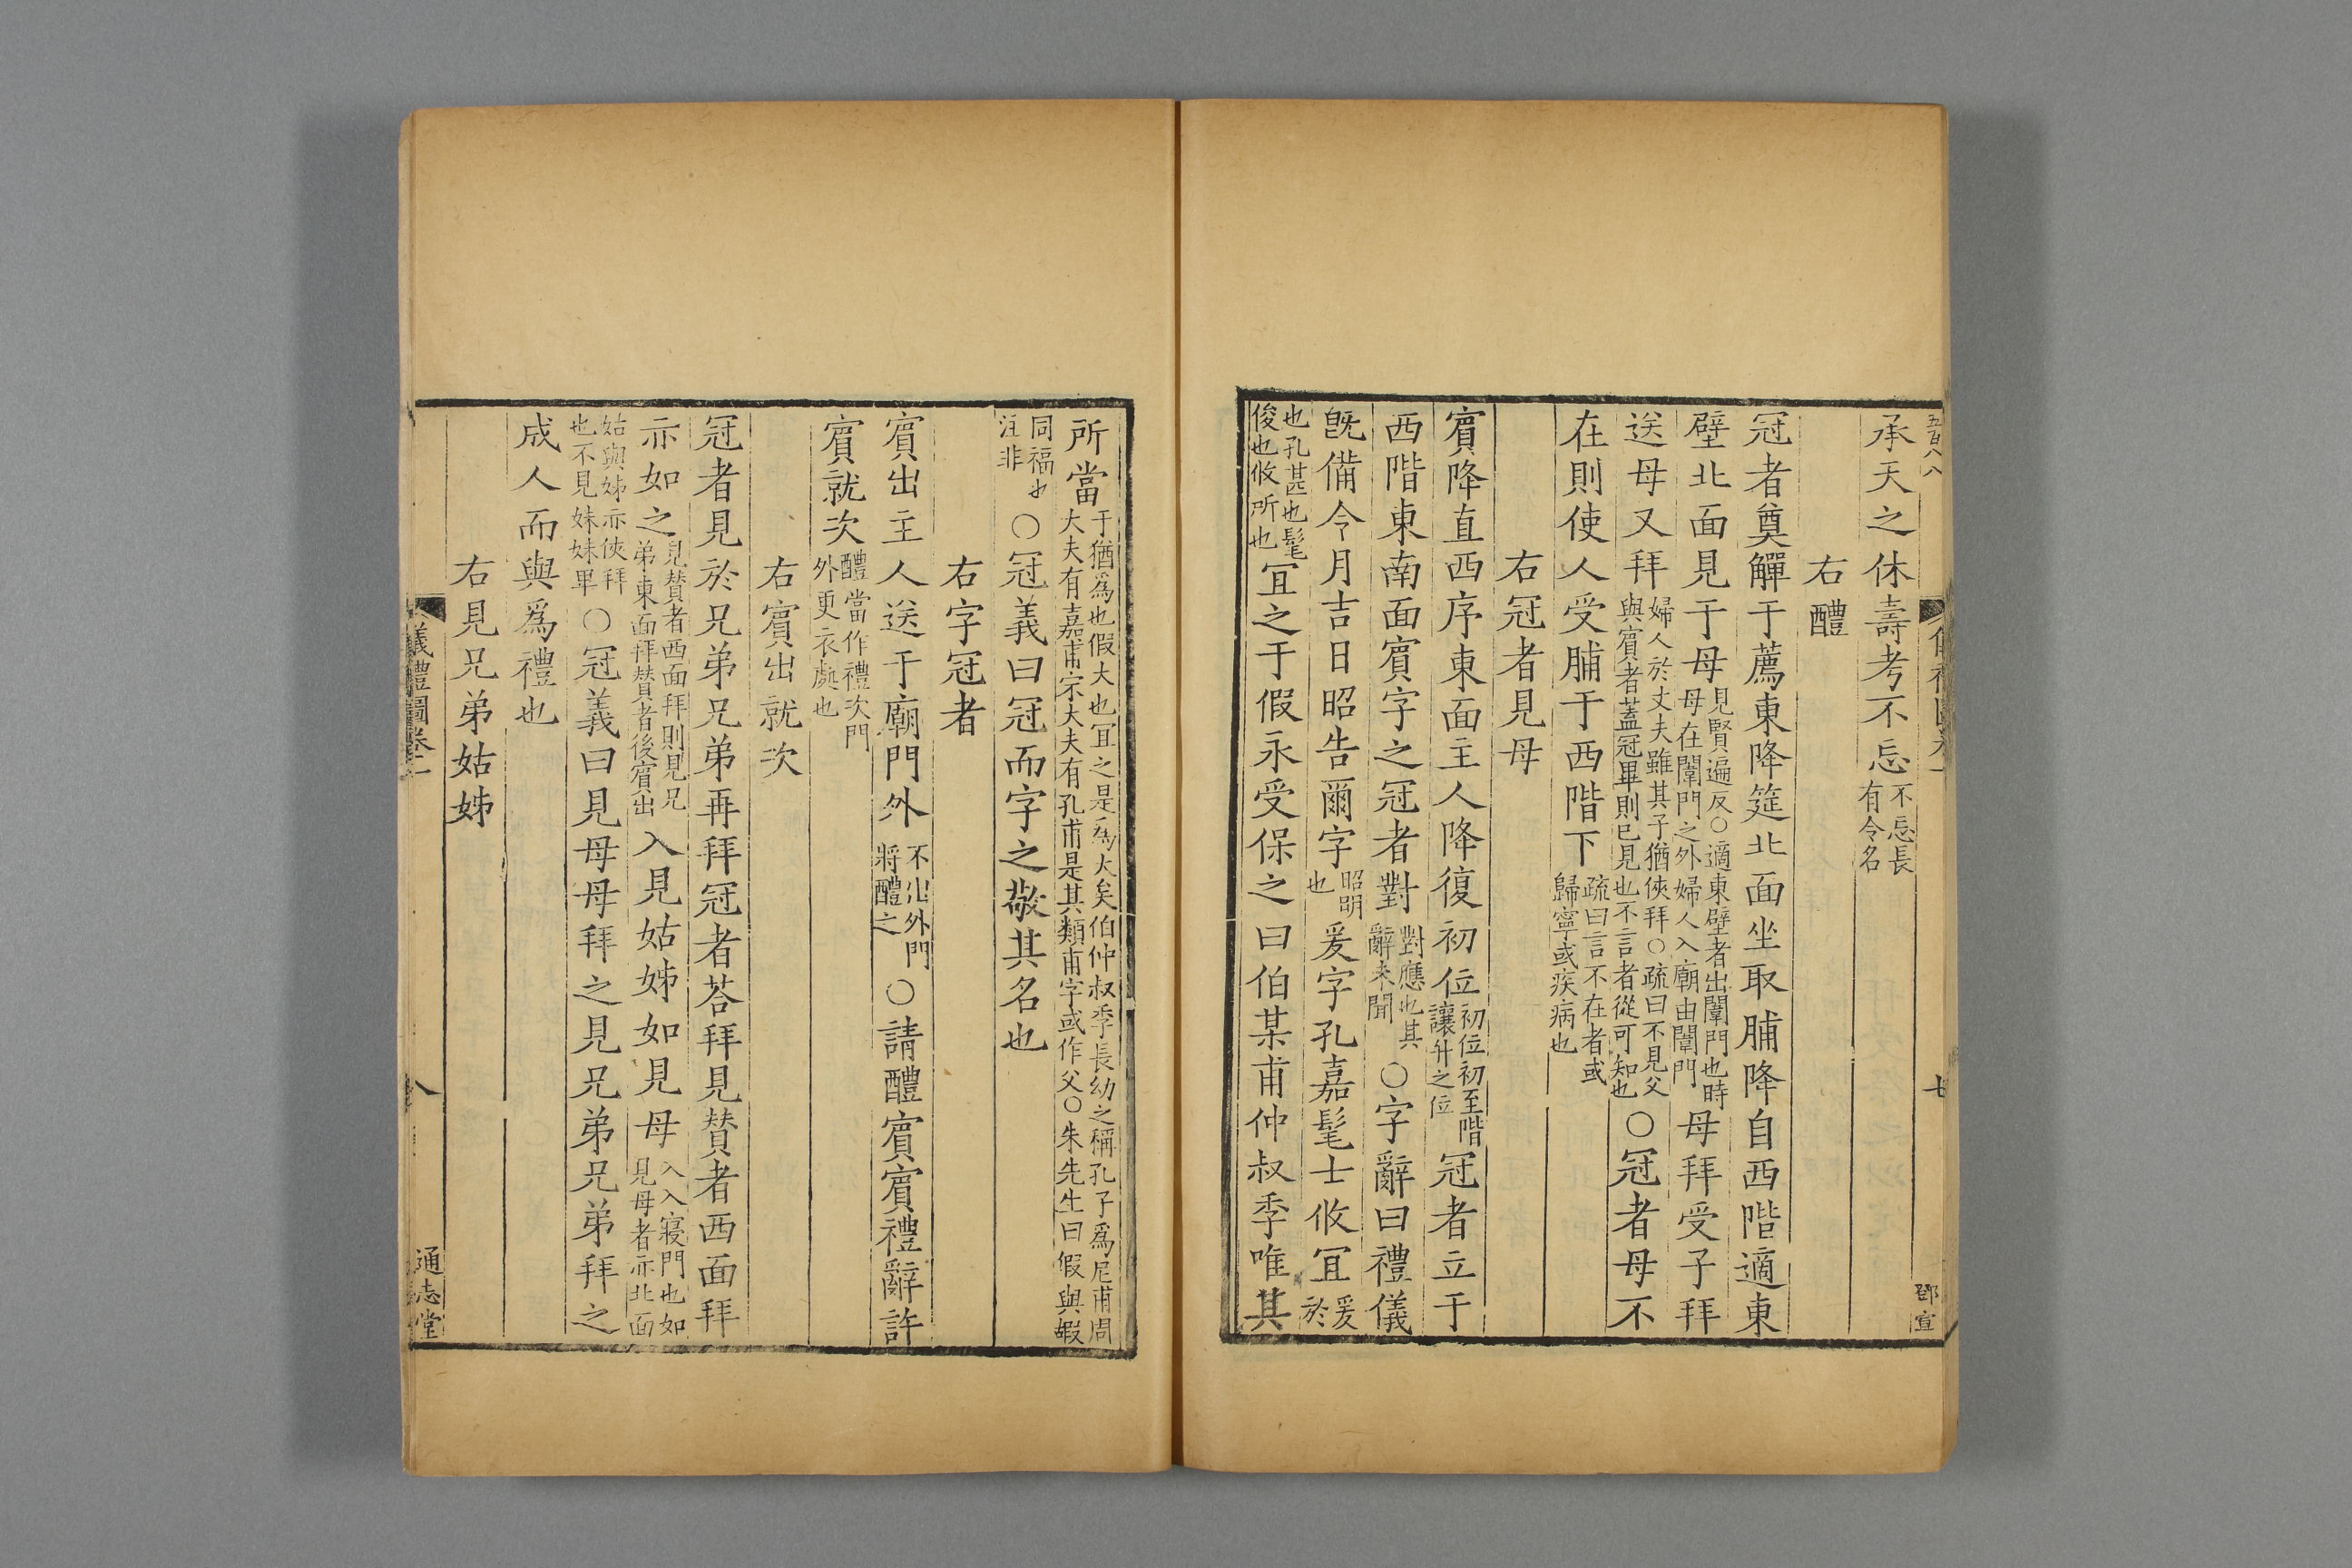 五百八八
承天之休壽考不忘不忘長有令名
右醴
冠者奠觶于薦東降筵北面坐取脯降自西階適東
壁北面見于母見賢遍反○適東壁者出闈門也時母在闈門之外婦人入廟由闈門母拜受子拜
送母又拜婦人於丈夫雖其子猶俠拜○疏曰不見父與賓者蓋冠畢則已見也不言者從可知也○冠者母不
在則使人受脯于西階下疏曰言不在者或歸寧或疾病也
右冠者見母
賓降直西序東面主人降復初位初位初至階讓升之位冠者立于
西階東南面賓字之冠者對對應也其辭未聞○字辭曰禮儀
旣備令月吉日昭告爾字昭明也爰字孔嘉髦士攸冝爰於
也孔甚也髦俊也攸所也冝之于假永受保之曰伯某甫仲叔季唯其
鄧宣
所當于猶爲也假大也冝之是爲大矣伯仲叔季長幼之稱孔子爲尼甫周大夫有嘉甫宋大夫有孔甫是其類甫字或作父○朱先生曰假與嘏
同福也注非○冠義曰冠而字之敬其名也
右字冠者
賓出主人送于廟門外不出外門將醴之○請醴賓賓禮辭許
賓就次醴當作禮次門外更衣處也
右賓出就次
冠者見於兄弟兄弟再拜冠者荅拜見賛者西面拜
亦如之見賛者西面拜則見兄弟東面拜賛者後賓出入見姑姊如見母入入寢門也如見母者亦北面
姑與姊亦俠拜也不見妹妹卑○冠義曰見母母拜之見兄弟兄弟拜之
成人而與爲禮也
右見兄弟姑姊
儀禮圖卷一
八
通志堂